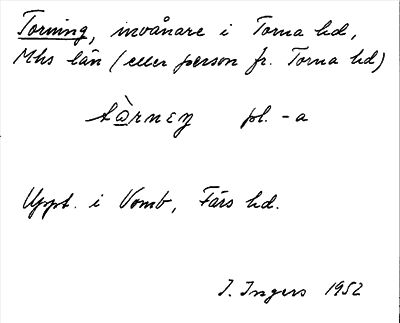 Torning, invånare i Torna hd,
Mhs län (eller person fr. Torna hd)
tàrnεŋ pl. -a
Uppt. i Vomb, Färs hd.
I. Ingers 1952